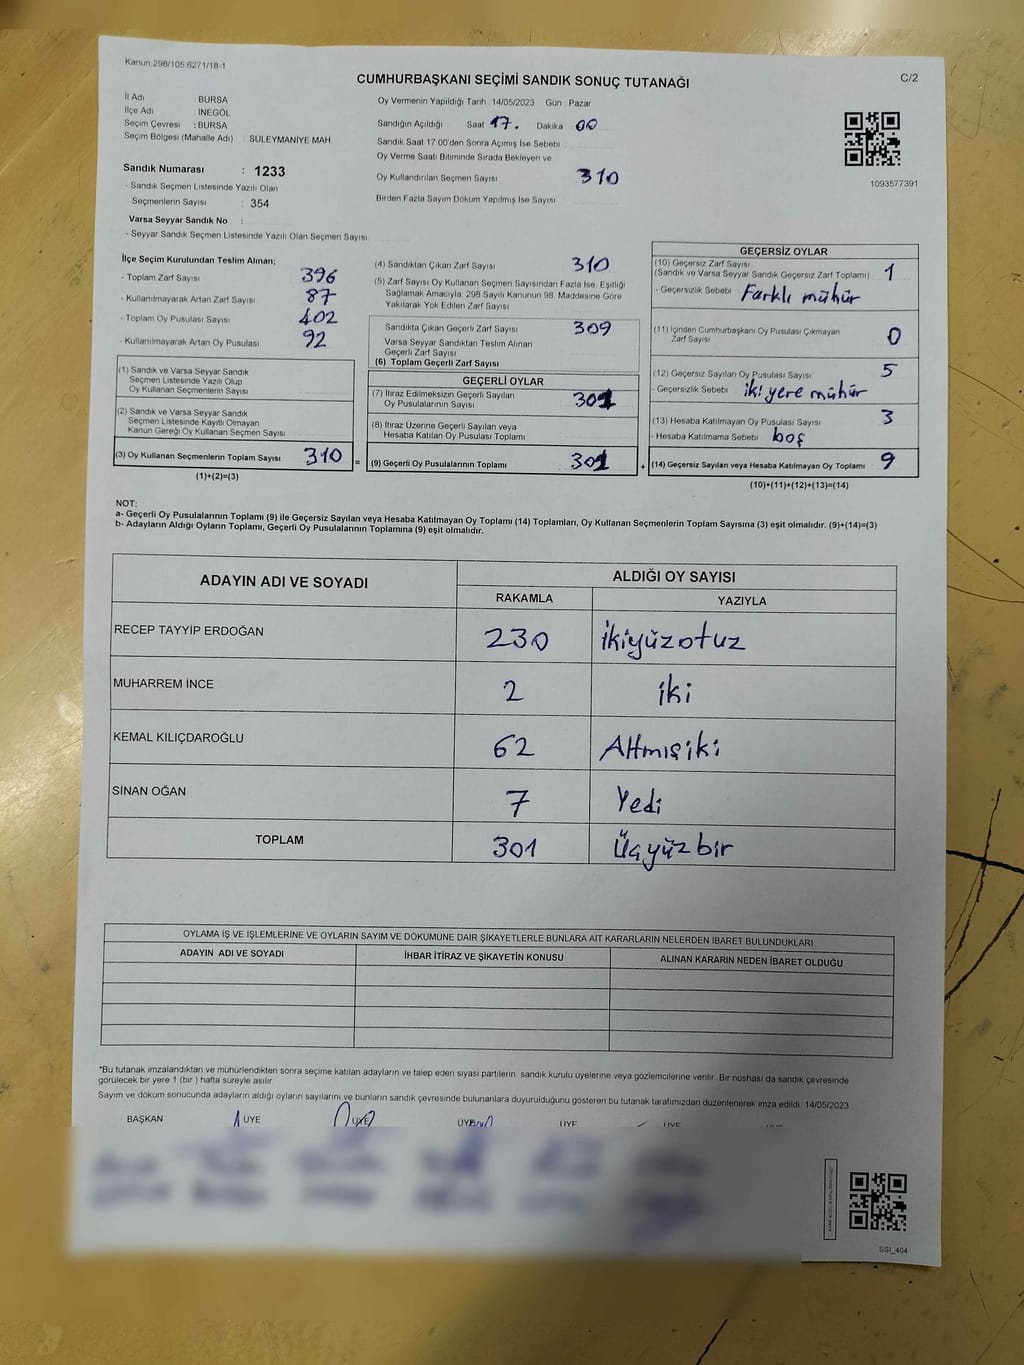 Kanun 298/105 6271/18-1
CUMHURBAŞKANI SEÇİMİ SANDIK SONUÇ TUTANAĞI
C/2
İl Adı BURSA
İlçe Adı İNEGÖL
Seçim Çevresi : BURSA
Seçim Bölgesi (Mahalle Adı) : SÜLEYMANİYE MAH
Sandık Numarası : 1233
- Sandık Seçmen Listesinde Yazılı Olan
Seçmenlerin Sayısı : 354
Varsa Seyyar Sandık No :
- Seyyar Sandık Seçmen Listesinde Yazılı Olan Seçmen Sayısı
Oy Vermenin Yapıldığı Tarih : 14/05/2023 Gün : Pazar
Sandığın Açıldığı Saat 17. Dakika 00
Sandık Saat 17:00'den Sonra Açımış İse Sebebi
Oy Verme Saati Bitiminde Sırada Bekleyen ve
Oy Kullandırılan Seçmen Sayısı 310
Birden Fazla Sayım Döküm Yapılmış İse Sayısı
1093577391
İlçe Seçim Kurulundan Teslim Alınan;
- Toplam Zarf Sayısı 396
- Kullanılmayarak Artan Zarf Sayısı 87
- Toplam Oy Pusulası Sayısı 402
- Kullanılmayarak Artan Oy Pusulası 92
(1) Sandık ve Varsa Seyyar Sandık
Seçmen Listesinde Yazılı Olup
Oy Kullanan Seçmenlerin Sayısı
(2) Sandık ve Varsa Seyyar Sandık
Seçmen Listesinde Kayıtlı Olmayan
Kanun Gereği Oy Kullanan Seçmen Sayısı
(3) Oy Kullanan Seçmenlerin Toplam Sayısı 310 =
(1)+(2)=(3)
(4) Sandıktan Çıkan Zarf Sayısı 310
(5) Zarf Sayısı Oy Kullanan Seçmen Sayısından Fazla İse, Eşitliği
Sağlamak Amacıyla, 298 Sayılı Kanunun 98. Maddesine Göre
Yakılarak Yok Edilen Zarf Sayısı
Sandıkta Çıkan Geçerli Zarf Sayısı 309
Varsa Seyyar Sandıktan Teslim Alınan
Geçerli Zarf Sayısı
(6) Toplam Geçerli Zarf Sayısı
GEÇERLİ OYLAR
(7) İtiraz Edilmeksizin Geçerli Sayılan
Oy Pusulalarının Sayısı 301
(8) İtiraz Üzerine Geçerli Sayılan veya
Hesaba Katılan Oy Pusulası Toplamı
(9) Geçerli Oy Pusulalarının Toplamı 301 +
GEÇERSİZ OYLAR
(10) Geçersiz Zarf Sayısı
(Sandık ve Varsa Seyyar Sandık Geçersiz Zarf Toplamı) 1
- Geçersizlik Sebebi Farklı mühür
(11) İçinden Cumhurbaşkanı Oy Pusulası Çıkmayan
Zarf Sayısı 0
(12) Geçersiz Sayılan Oy Pusulası Sayısı 5
- Geçersizlik Sebebi iki yere mühür
(13) Hesaba Katılmayan Oy Pusulası Sayısı 3
- Hesaba Katılmama Sebebi boş
(14) Geçersiz Sayılan veya Hesaba Katılmayan Oy Toplamı 9
(10)+(11)+(12)+(13)=(14)
NOT:
a- Geçerli Oy Pusulalarının Toplamı (9) ile Geçersiz Sayılan veya Hesaba Katılmayan Oy Toplamı (14) Toplamları, Oy Kullanan Seçmenlerin Toplam Sayısına (3) eşit olmalıdır. (9)+(14)=(3)
b- Adayların Aldığı Oyların Toplamı, Geçerli Oy Pusulalarının Toplamına (9) eşit olmalıdır.
ADAYIN ADI VE SOYADI ALDIĞI OY SAYISI
RAKAMLA YAZIYLA
RECEP TAYYİP ERDOĞAN 230 ikiyüzotuz
MUHARREM İNCE 2 iki
KEMAL KILIÇDAROĞLU 62 Altmışiki
SİNAN OĞAN 7 Yedi
TOPLAM 301 Üçyüzbir
OYLAMA İŞ VE İŞLEMLERİNE VE OYLARIN SAYIM VE DÖKÜMÜNE DAİR ŞİKAYETLERLE BUNLARA AİT KARARLARIN NELERDEN İBARET BULUNDUKLARI
ADAYIN ADI VE SOYADI İHBAR İTİRAZ VE ŞİKAYETİN KONUSU ALINAN KARARIN NEDEN İBARET OLDUĞU
*Bu tutanak imzalandıktan ve mühürlendikten sonra seçime katılan adayların ve talep eden siyasi partilerin sandık kurulu üyelerine veya gözlemcilerine verilir. Bir nüshası da sandık çevresinde
görülecek bir yere 1 (bir ) hafta süreyle asılır.
Sayım ve döküm sonucunda adayların aldığı oyların sayılarını ve bunların sandık çevresinde bulunanlara duyurulduğunu gösteren bu tutanak tarafımızdan düzenlenerek imza edildi. 14/05/2023
BAŞKAN ÜYE ÜYE ÜYE ÜYE ÜYE
SSI_404